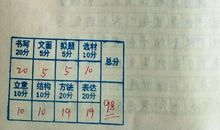 书写 文面 拟题 选材 总分
20分 5分 5分 10分
20 5 5 10
立意 结构 方法 表达
10分 10分 20分 20分
10 10 19 19 98